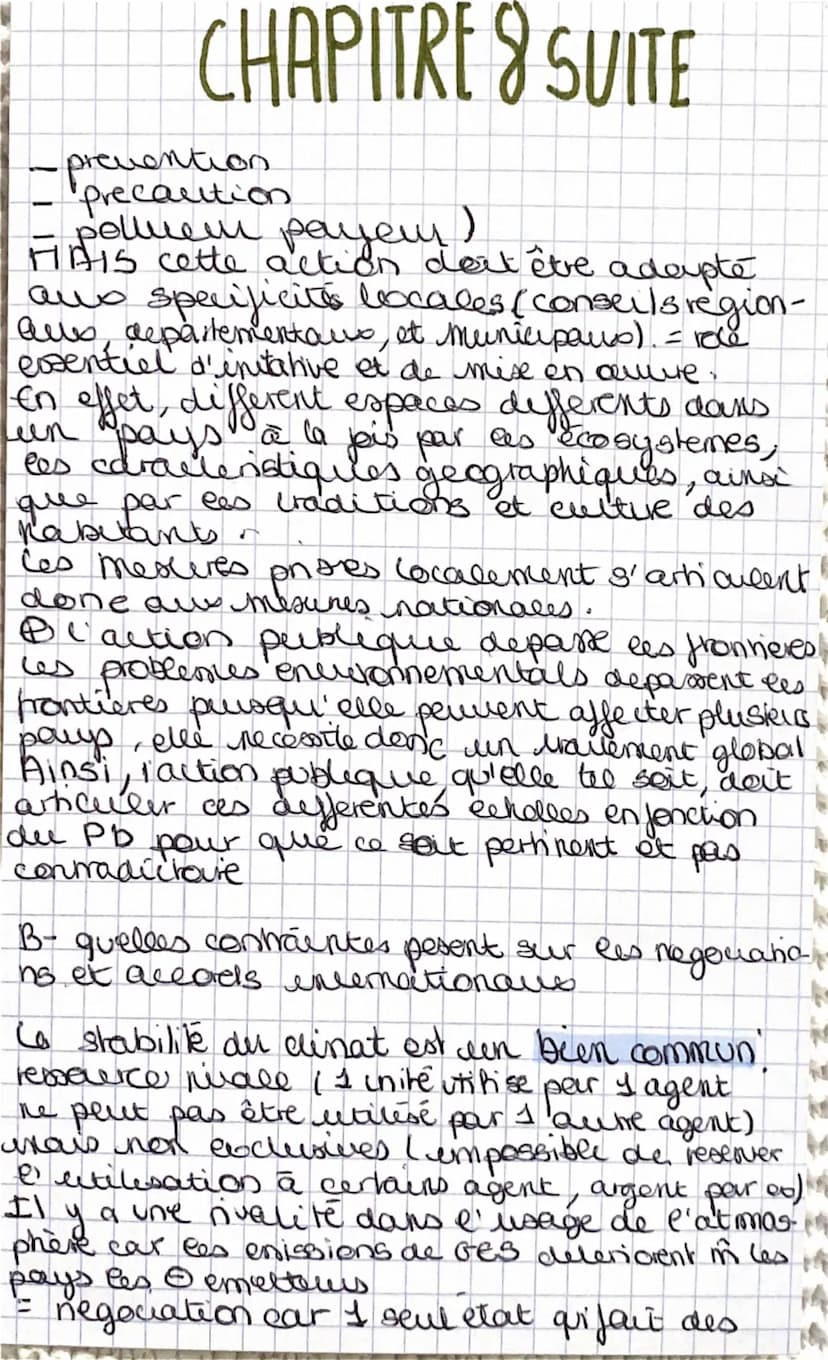 CHAPITRE 8 SUITE
- prevention
- precaution
- pollueur payeur)
MAIS cette action doit être adapté
aux specificités locales (conseils région-
aux, departementaux, et municipaux). = role
essentiel d'initative et de mise en œuvre.
En effet, different espaces differents dans
un pays à la fois par les écosystemes,
les caracteristiques geographiques, ainsi
que par les traditions et cultue des
habitants.
Les mesures prises localement s'articulent
donc aux mesures nationales.
⊕ l'action publique depasse les fronrieres
Les problemes environnementals depassent les
frontieres puisqu'elle peuvent affecter plusieurs
pays, elle necessite donc un traitement global
Ainsi, l'action publique, qu'elle tel soit, doit
articuler ces differentes échelles en fonction
du Pb pour que ce soit pertinent et pas
contradictoire
B- quelles contraintes pesent sur les negociatio-
ns et accords internationaux
La stabilité du climat est un bien commun:
ressource rivale (1 unité utilise par 1 agent
ne peut pas être utilisé par 1 autre agent)
mais non exclusives (impossible de reserver
l'utilisation à certains agent, argent par ex)
Il y a une rivalité dans l'usage de l'atmos-
phère car les emissions de GES deteriorent m̂ les
pays les ⊖ emetteurs
= negociation car 1 seul état qui fait des